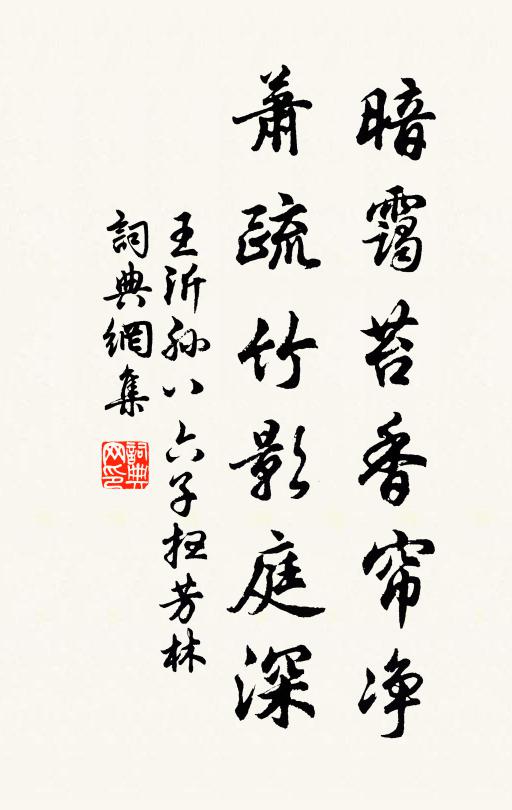 暗靄苔香帘净
蕭疏竹影庭深
王沂孫八六子掃芳林
詞典網集
詞典网印